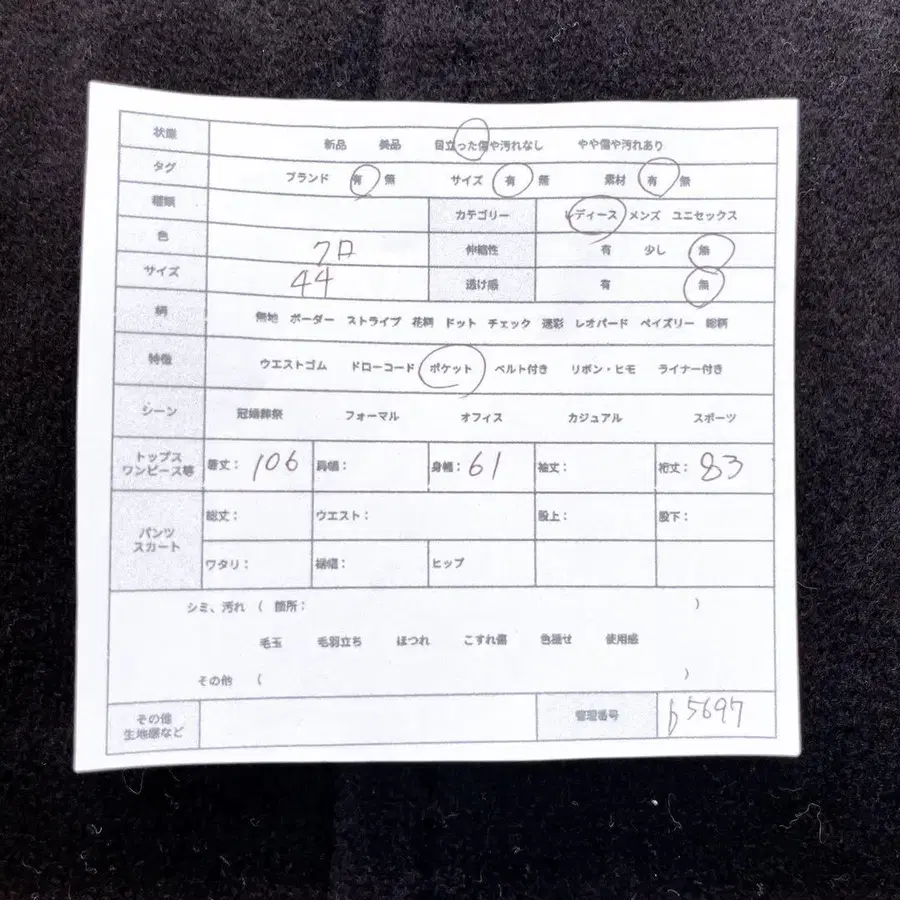 状態 新品 美品 目立った傷や汚れなし やや傷や汚れあり
タグ ブランド 有 無 サイズ 有 無 素材 有 無
種類 カテゴリー レディース メンズ ユニセックス
色 クロ 伸縮性 有 少し 無
サイズ 44 透け感 有 無
柄 無地 ボーダー ストライプ 花柄 ドット チェック 迷彩 レオパード ペイズリー 総柄
特徴 ウエストゴム ドローコード ポケット ベルト付き リボン・ヒモ ライナー付き
シーン 冠婚葬祭 フォーマル オフィス カジュアル スポーツ
トップス
ワンピース等 着丈: 106 肩幅: 身幅: 61 袖丈: 裄丈: 83
パンツ
スカート 総丈: ウエスト: 股上: 股下:
ワタリ: 裾幅: ヒップ
シミ、汚れ ( 箇所: )
毛玉 毛羽立ち ほつれ こすれ傷 色褪せ 使用感
その他 ( )
その他
生地感など 管理番号 b5697